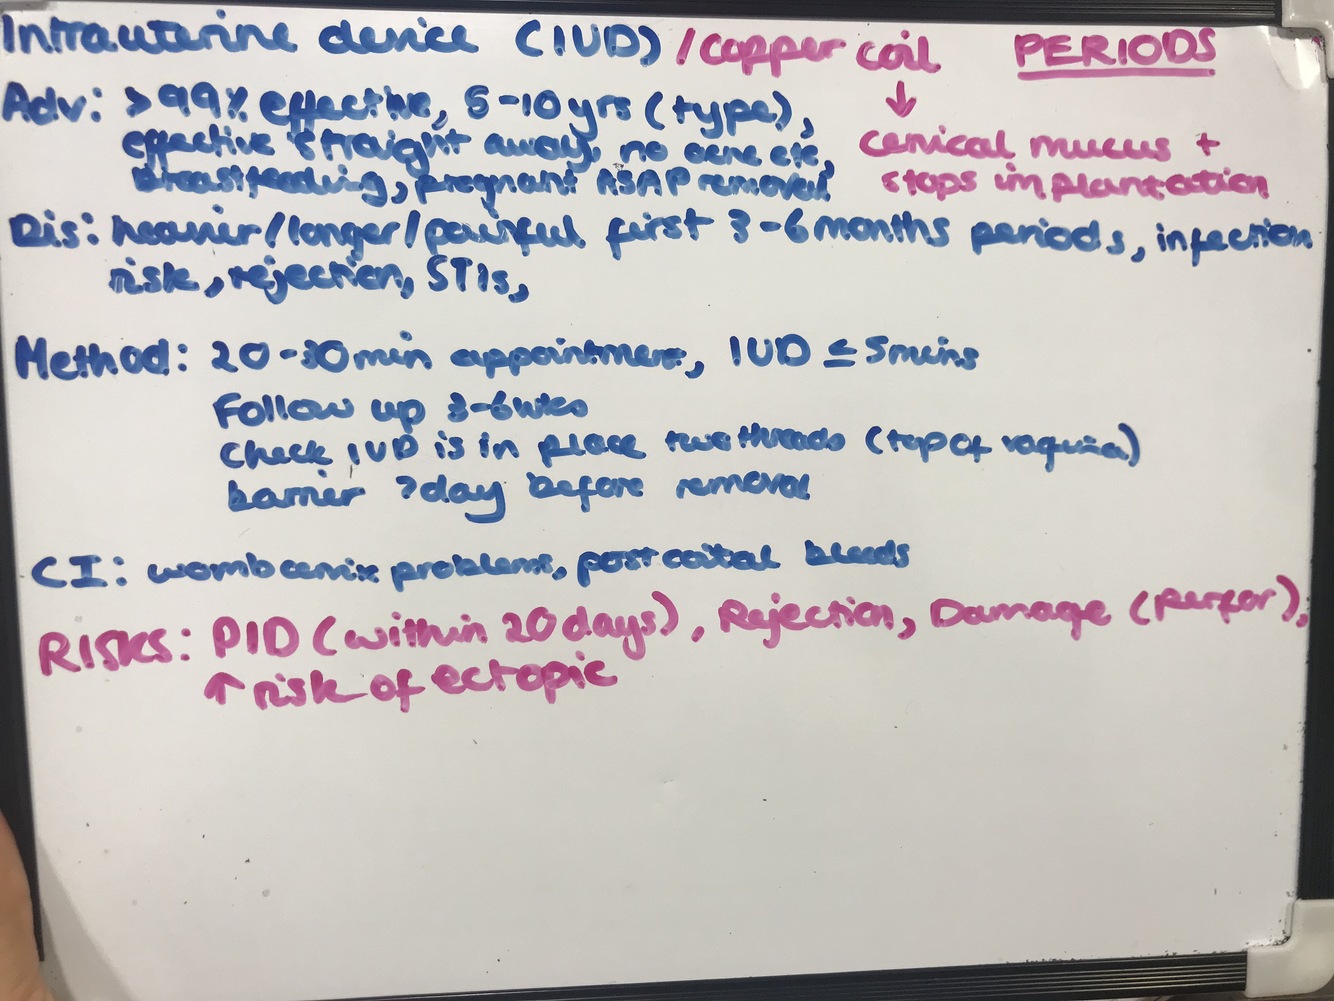 Intrauterine device (IUD) / copper coil PERIODS
↓
Adv: >99% effective, 5-10yrs (type),
effective straight away, no acne etc,
breastfeeding, pregnant ASAP removal
cervical mucus +
stops implantation
Dis: heavier/longer/painful first 3-6months periods, infection
risk, rejection, STIs,
Method: 20-30min appointment, IUD ≤5mins
Follow up 3-6wks
Check IUD is in place two threads (top of vagina)
barrier 7day before removal
CI: womb cervix problems, post coital bleeds
RISKS: PID (within 20days), Rejection, Damage (perfor),
↑ risk of ectopic